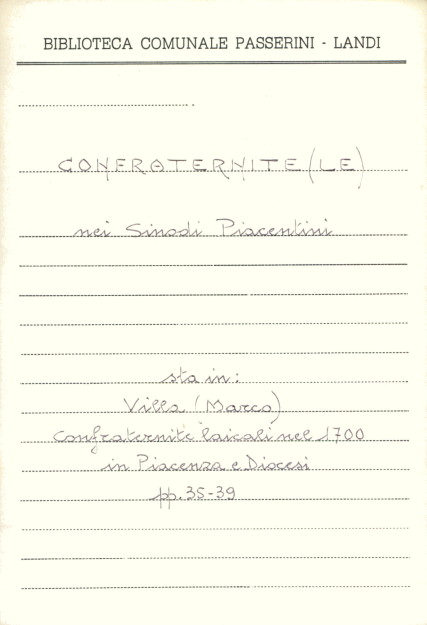 BIBLIOTECA COMUNALE PASSERINI - LANDI
CONFRATERNITE (LE)
nei Sinodi Piacentini
sta in:
Villa (Marco)
Confraternite laicali nel 1700
in Piacenza e Diocesi
pp. 35-39